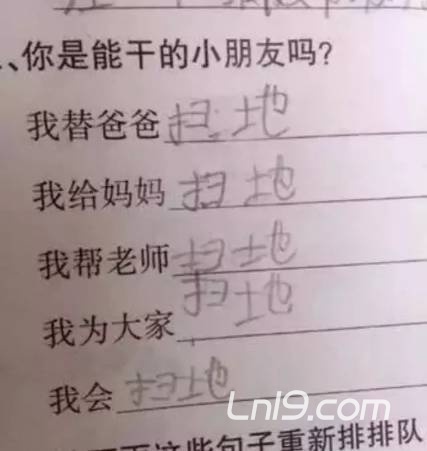 、你是能干的小朋友吗?
我替爸爸扫地
我给妈妈扫地
我帮老师扫地
我为大家扫地
我会扫地
Lnl9.com
这些句子重新排排队